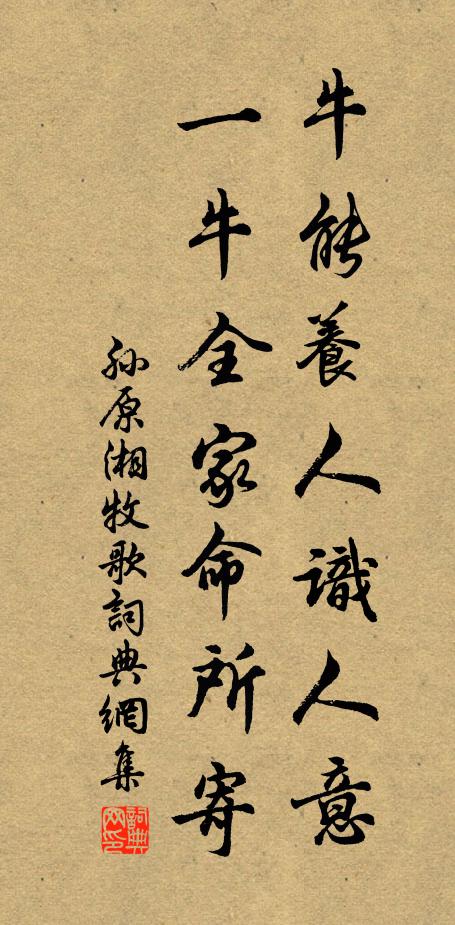 牛能養人識人意
一牛全家命所寄
孫原湘牧歌詞典網集
詞典網印